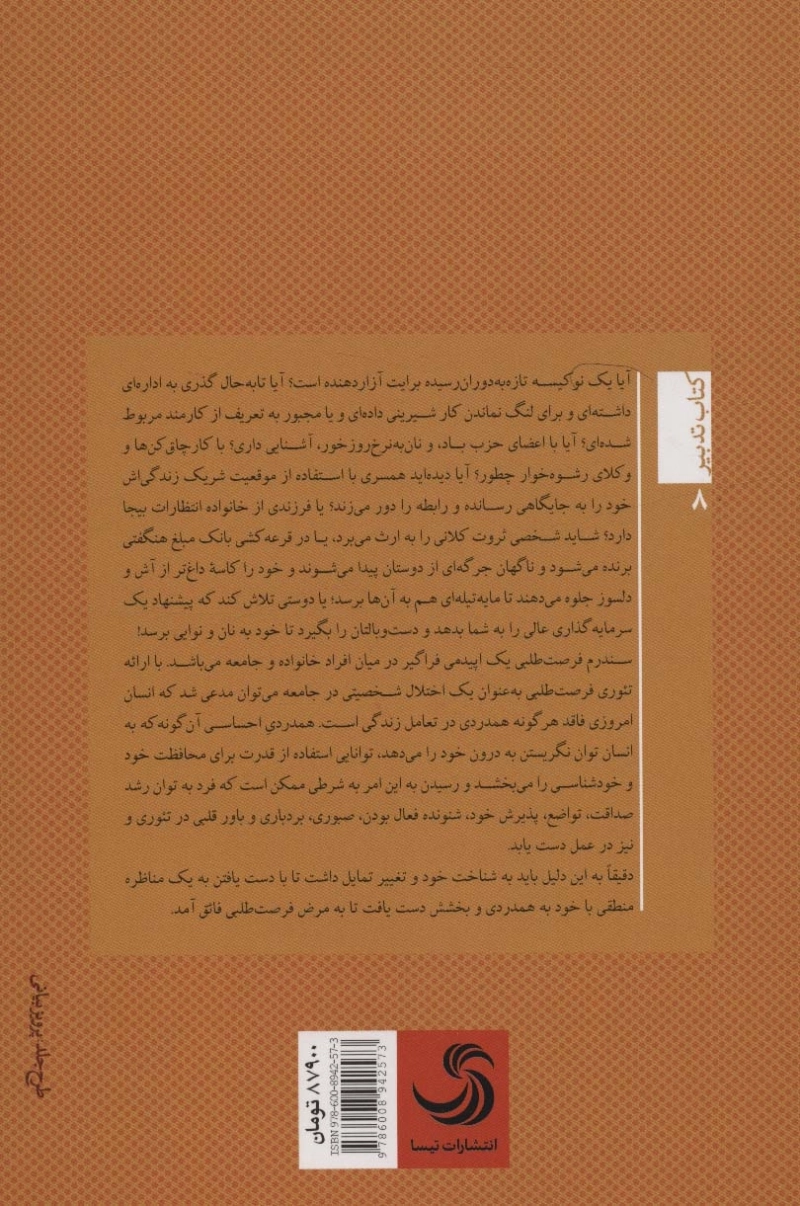 کتاب تدبیر
۸
آیا یک نوکیسه تازه‌به‌دوران‌رسیده برایت آزاردهنده است؟ آیا تابه‌حال گذری به اداره‌ای
داشته‌ای و برای لنگ نماندن کار شیرینی داده‌ای و یا مجبور به تعریف از کارمند مربوط
شده‌ای؟ آیا با اعضای حزب باد، و نان‌به‌نرخ‌روزخور، آشنایی داری؟ با کارچاق‌کن‌ها و
وکلای رشوه‌خوار چطور؟ آیا دیده‌اید همسری با استفاده از موقعیت شریک زندگی‌اش
خود را به جایگاهی رسانده و رابطه را دور می‌زند؟ یا فرزندی از خانواده انتظارات بیجا
دارد؟ شاید شخصی ثروت کلانی را به ارث می‌برد، یا در قرعه‌کشی بانک مبلغ هنگفتی
برنده می‌شود و ناگهان جرگه‌ای از دوستان پیدا می‌شوند و خود را کاسهٔ داغ‌تر از آش و
دلسوز جلوه می‌دهند تا مایه‌تیله‌ای هم به آن‌ها برسد؛ یا دوستی تلاش کند که پیشنهاد یک
سرمایه‌گذاری عالی را به شما بدهد و دست‌وبالتان را بگیرد تا خود به نان و نوایی برسد!
سندرم فرصت‌طلبی یک اپیدمی فراگیر در میان افراد خانواده و جامعه می‌باشد. با ارائه
تئوری فرصت‌طلبی به‌عنوان یک اختلال شخصیتی در جامعه می‌توان مدعی شد که انسان
امروزی فاقد هرگونه همدردی در تعامل زندگی است. همدردیِ احساسی آن‌گونه‌که به
انسان توان نگریستن به درون خود را می‌دهد، توانایی استفاده از قدرت برای محافظت خود
و خودشناسی را می‌بخشد و رسیدن به این امر به شرطی ممکن است که فرد به توان رشد
صداقت، تواضع، پذیرش خود، شنونده فعال بودن، صبوری، بردباری و باور قلبی در تئوری و
نیز در عمل دست یابد.
دقیقاً به این دلیل باید به شناخت خود و تغییر تمایل داشت تا با دست یافتن به یک مناظره
منطقی با خود به همدردی و بخشش دست یافت تا به مرض فرصت‌طلبی فائق آمد.
طرح جلد: پرویز بیانی
۸۷۹۰۰ تومان
ISBN 978-600-8942-57-3
9 786008 942573
انتشارات تیسا